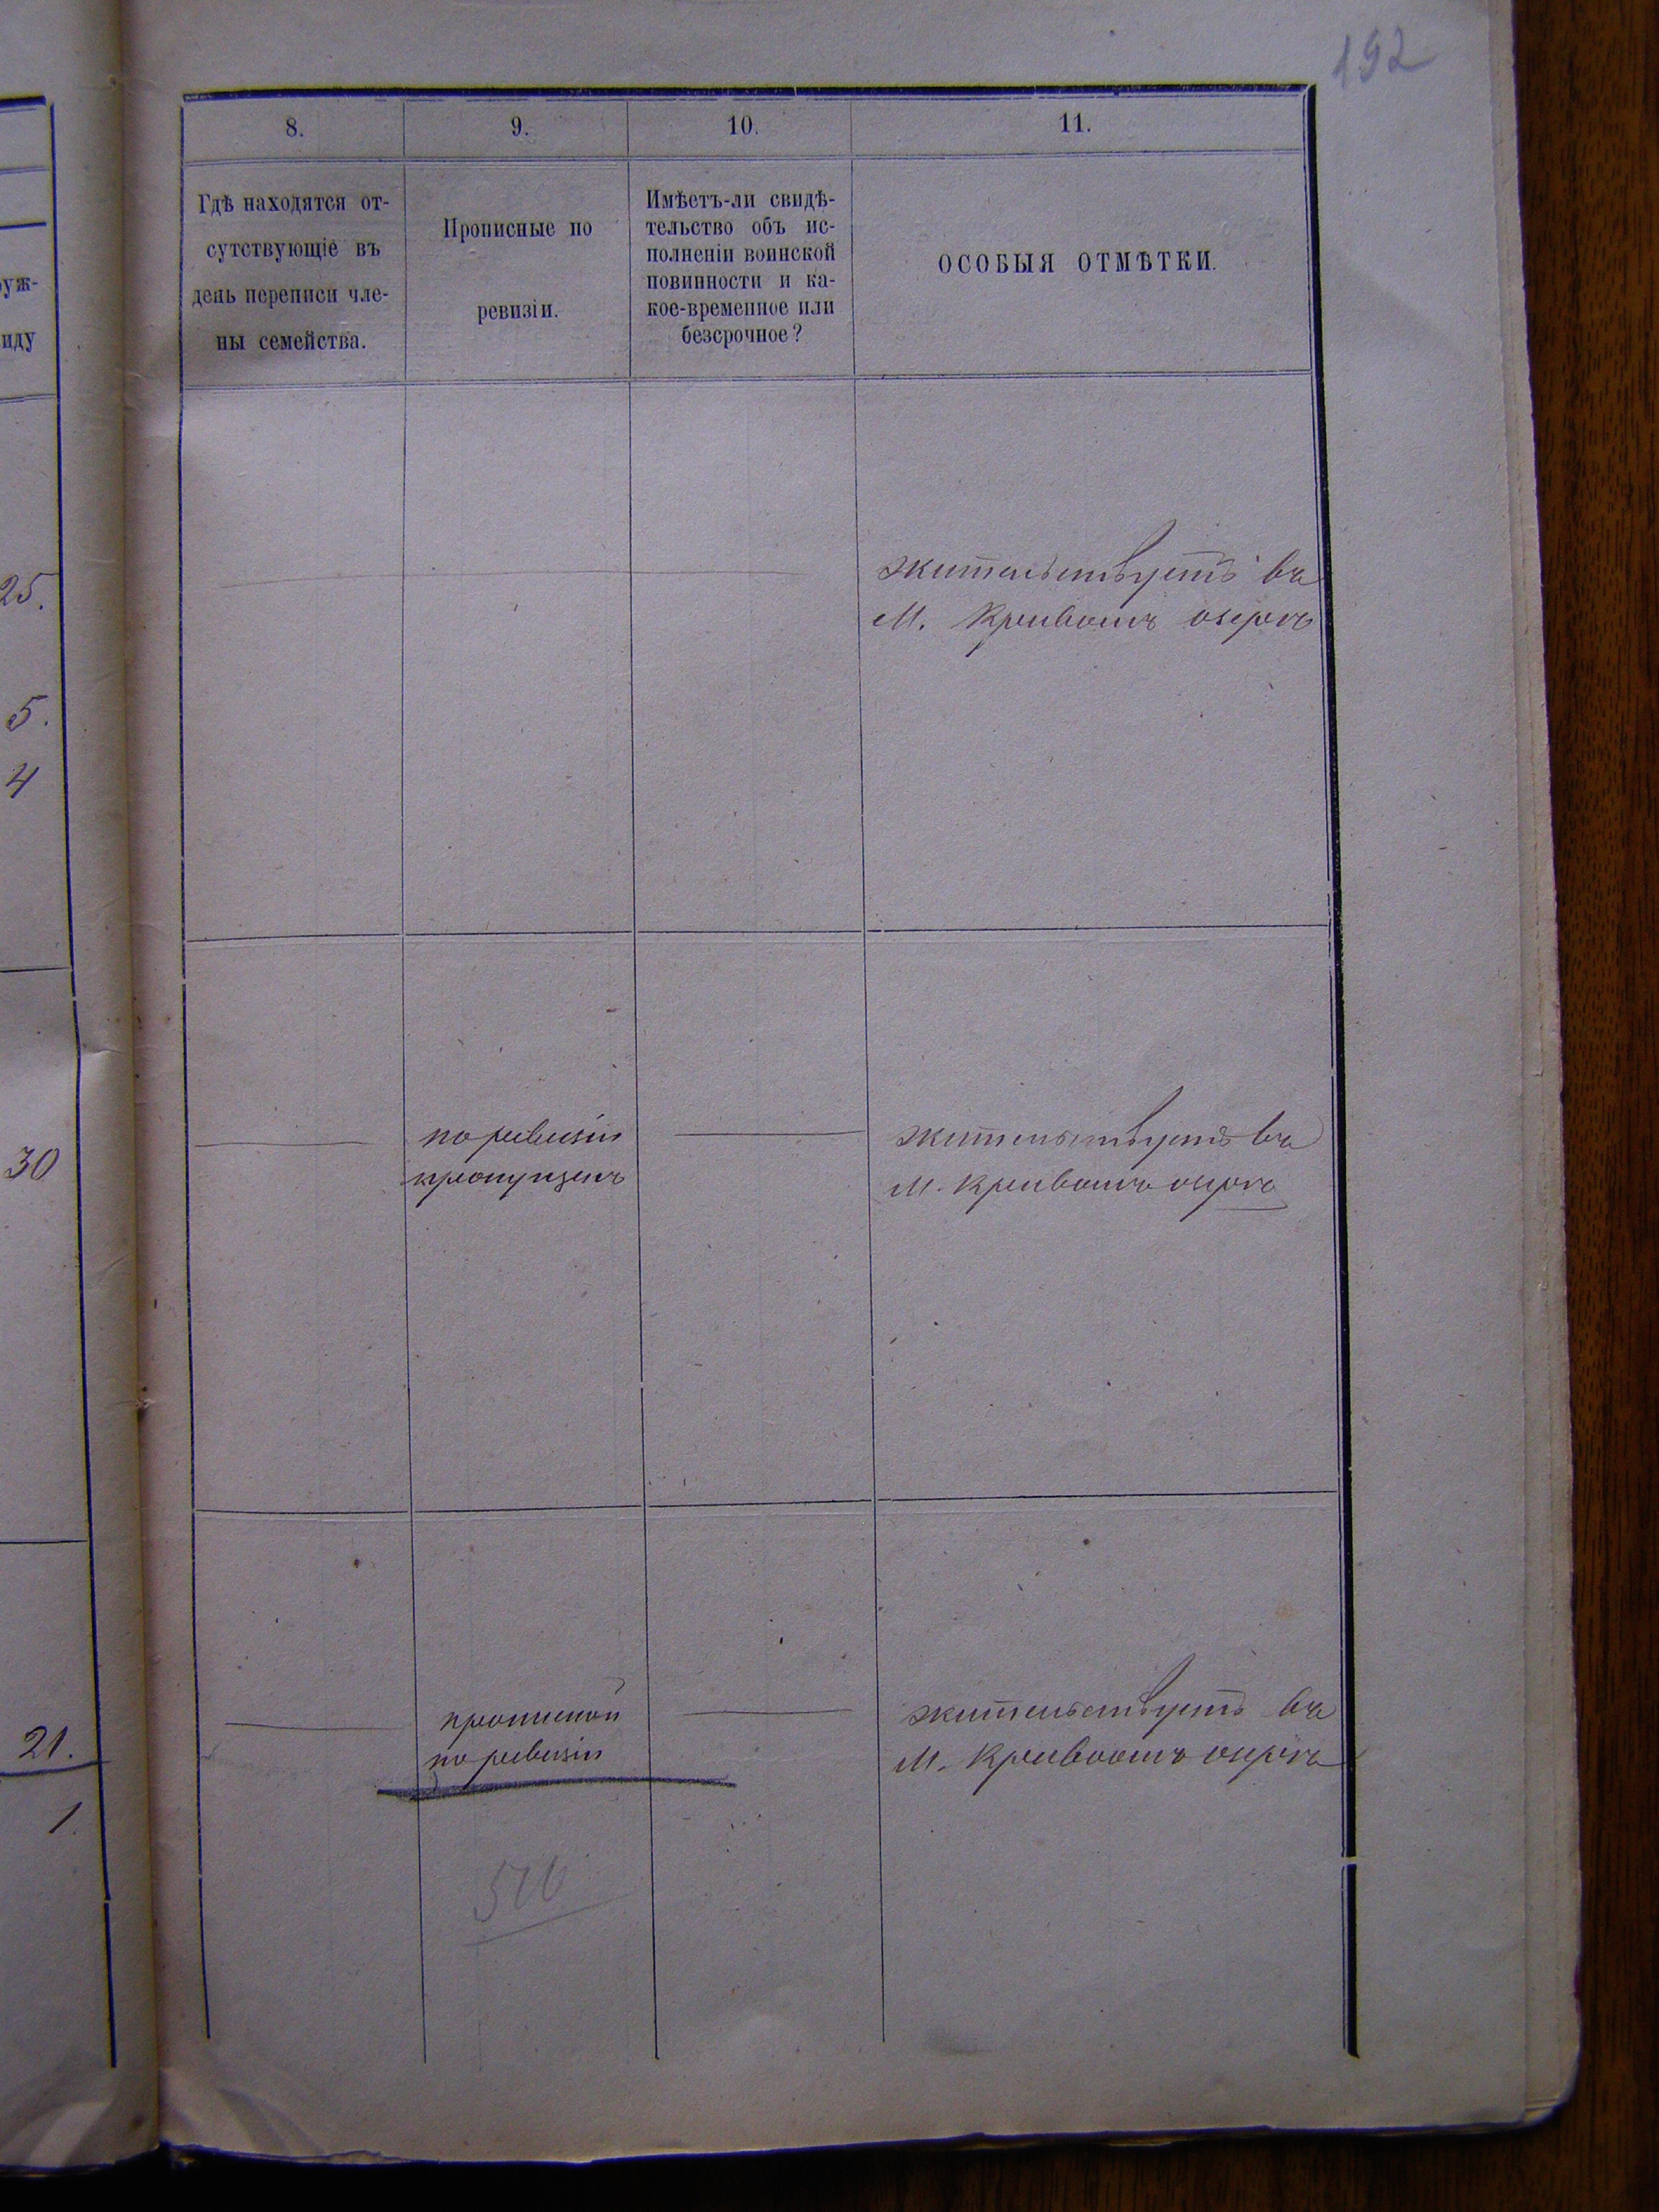 192
8.
9.
10.
11.
Гдѣ находятся от-
сутствующіе въ
день переписи чле-
ны семейства.
Прописные по
ревизіи.
Имѣетъ-ли свидѣ-
тельство объ ис-
полненіи воинской
повинности и ка-
кое-временное или
безсрочное?
ОСОБЫЯ ОТМѢТКИ.
уж-
иду
25.
5.
4
30
21.
1
жительствуетъ въ
М. Кривомъ озерѣ
по ревизіи
пропущенъ
жительствуетъ въ
М. Кривомъ озерѣ
прописной
по ревизіи
жительствуетъ въ
М. Кривомъ озерѣ